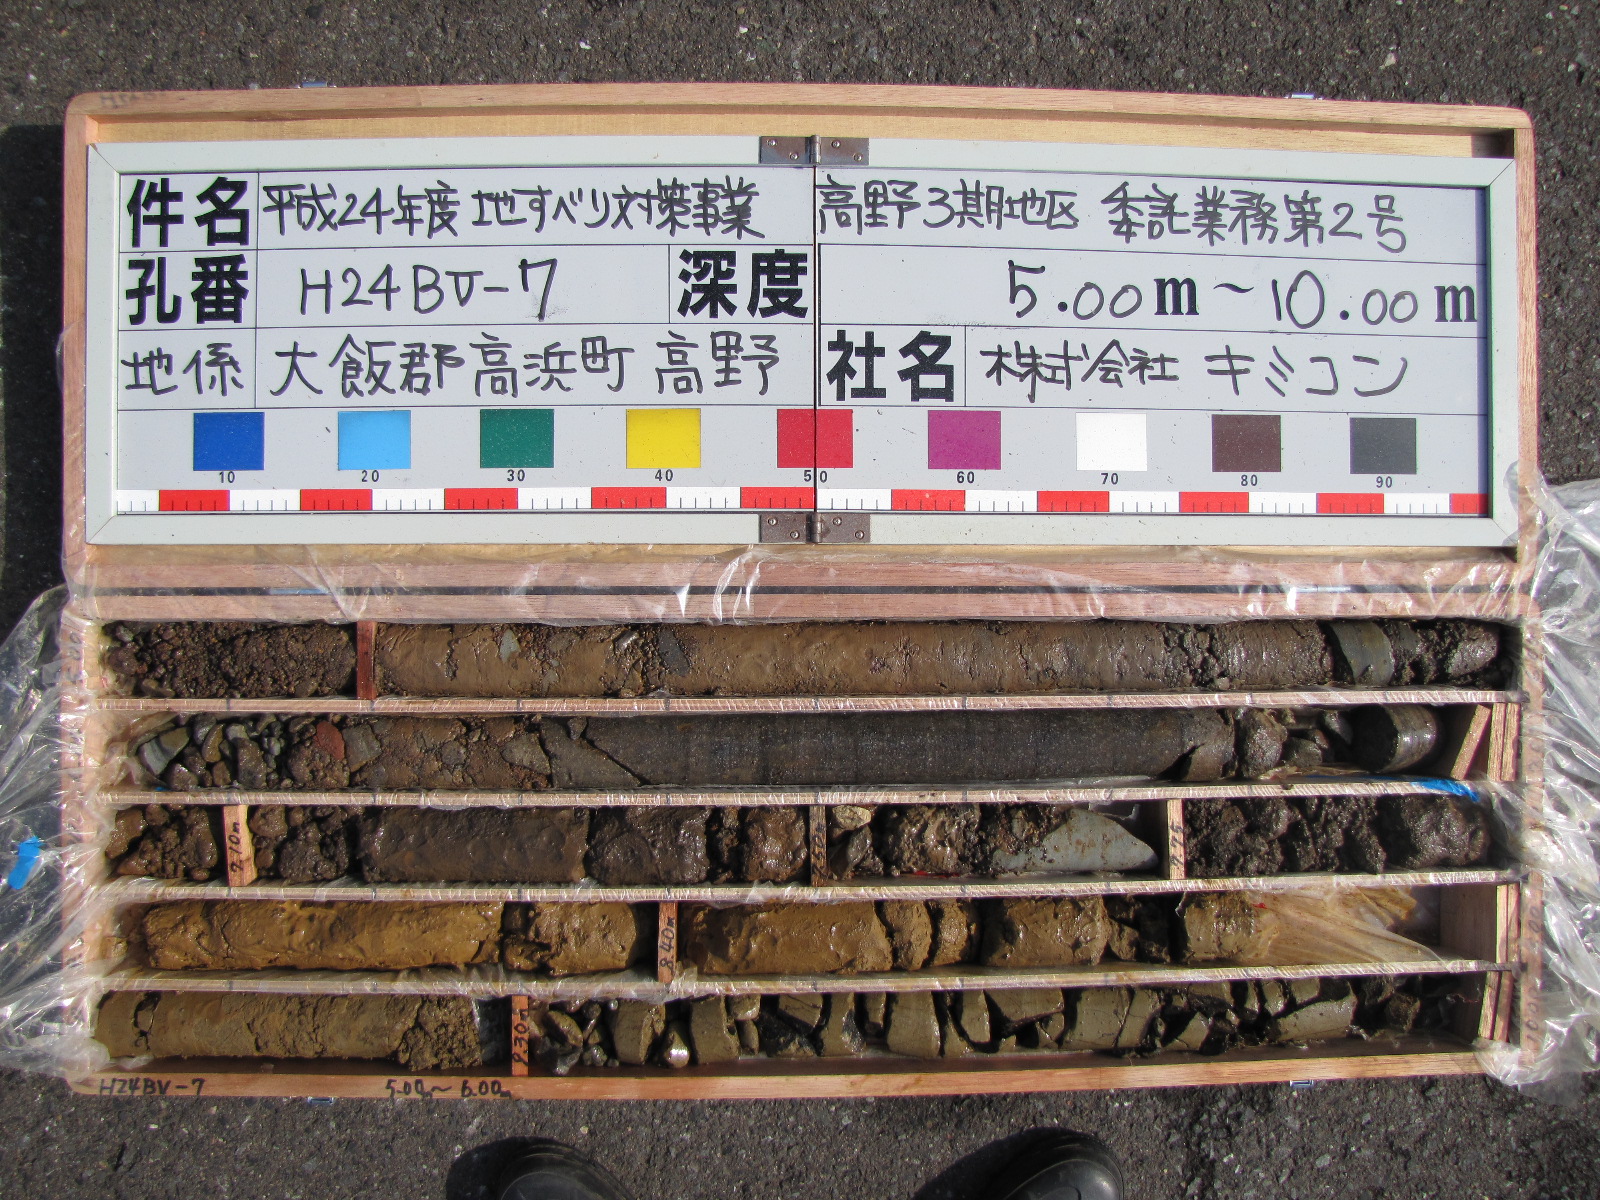 件名 平成24年度 地すべり対策事業 高野3期地区 委託業務第2号
孔番 H24BV-7 深度 5.00m~10.00m
地係 大飯郡高浜町 高野 社名 株式会社 キミコン
10 20 30 40 50 60 70 80 90
7.10m
7.50m
7.75
8.40m
9.30m
H24BV-7 5.00m~6.00m